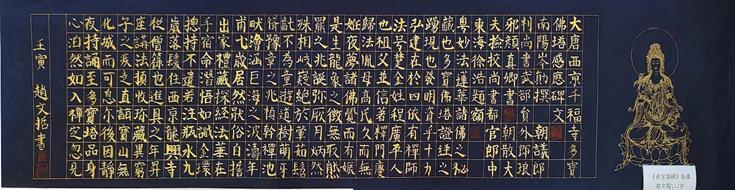 大唐西京千福寺多寶
佛塔感應碑文
南陽岑勛撰 朝議郎
判尚書武部員外郎琅
邪顏真卿書 朝散大
夫撿挍尚書都官郎中
東海徐浩題額
粵妙法蓮華諸佛之秘
藏也多寶佛塔證經之
踴現也發明資乎十力
弘建在於四依有禪師
法号楚金姓程廣平人
也祖父並信著釋門慶
歸法胤母高氏久而無
妊夜夢諸佛覺而有娠
是生龍象之徵無取熊
羆之兆誕彌厥月炳然
殊相岐嶷絕於葷茹髫
齔不為童遊道樹萌牙
聳豫章之楨幹禪池
畎澮涵巨海之波濤年
甫七歲居然厭俗自誓
出家禮藏探經法華在
手宿命潛悟如識金環
揔持不遺若注瓶水九
歲落髮住西京龍興寺
從僧籙也進具之年昇
座講法頓收珍藏異窮
子之疾走直詣寶山無
化城而可息尒後因靜
夜持誦至多寶塔品身
心泊然如入禪定忽見
壬寅 趙文哲書